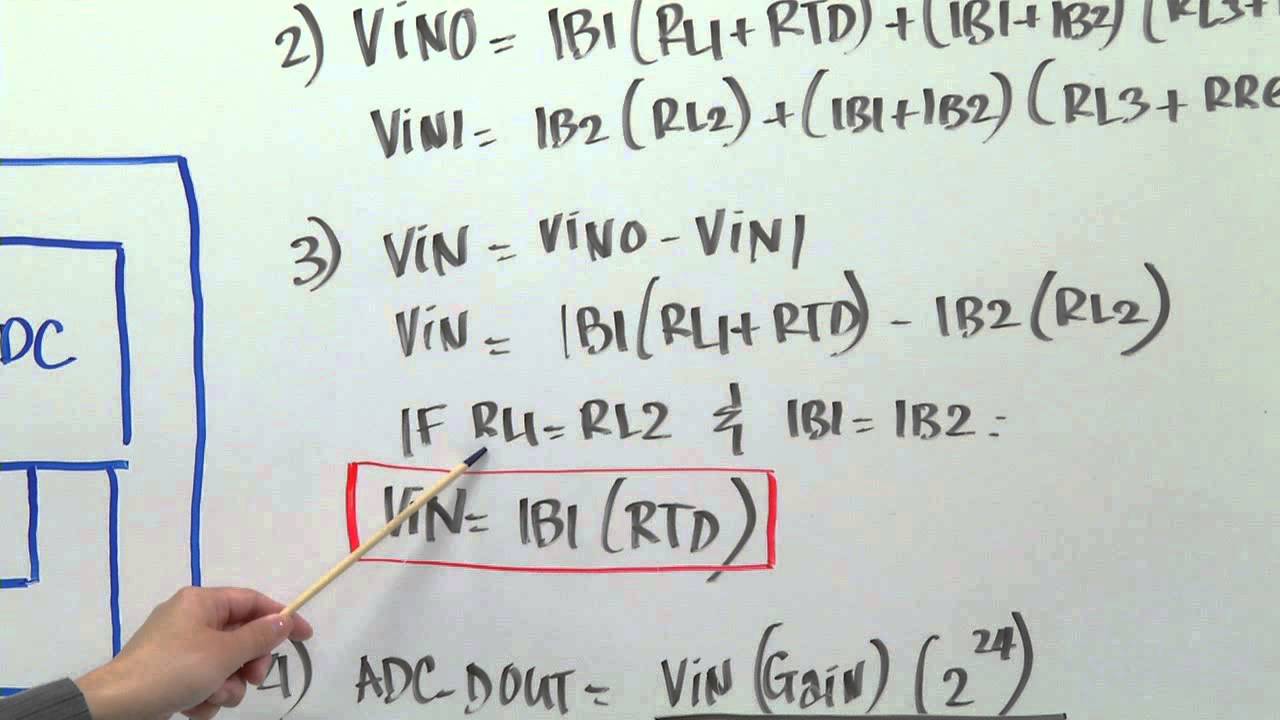 2) ViN0 = IB1 (RL1 + RTD) + (IB1 + IB2) (RL3 +
ViN1 = IB2 (RL2) + (IB1 + IB2) (RL3 + RRE
3) ViN = ViN0 - ViN1
ViN = IB1 (RL1 + RTD) - IB2 (RL2)
IF RL1 = RL2 & IB1 = IB2 :
ViN = IB1 (RTD)
4) ADC-DOUT = ViN (GaiN) (2^24)
DC